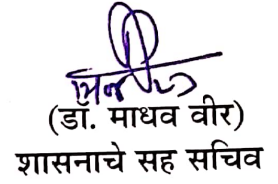 (डॉ. माधव वीर)
शासनाचे सह सचिव